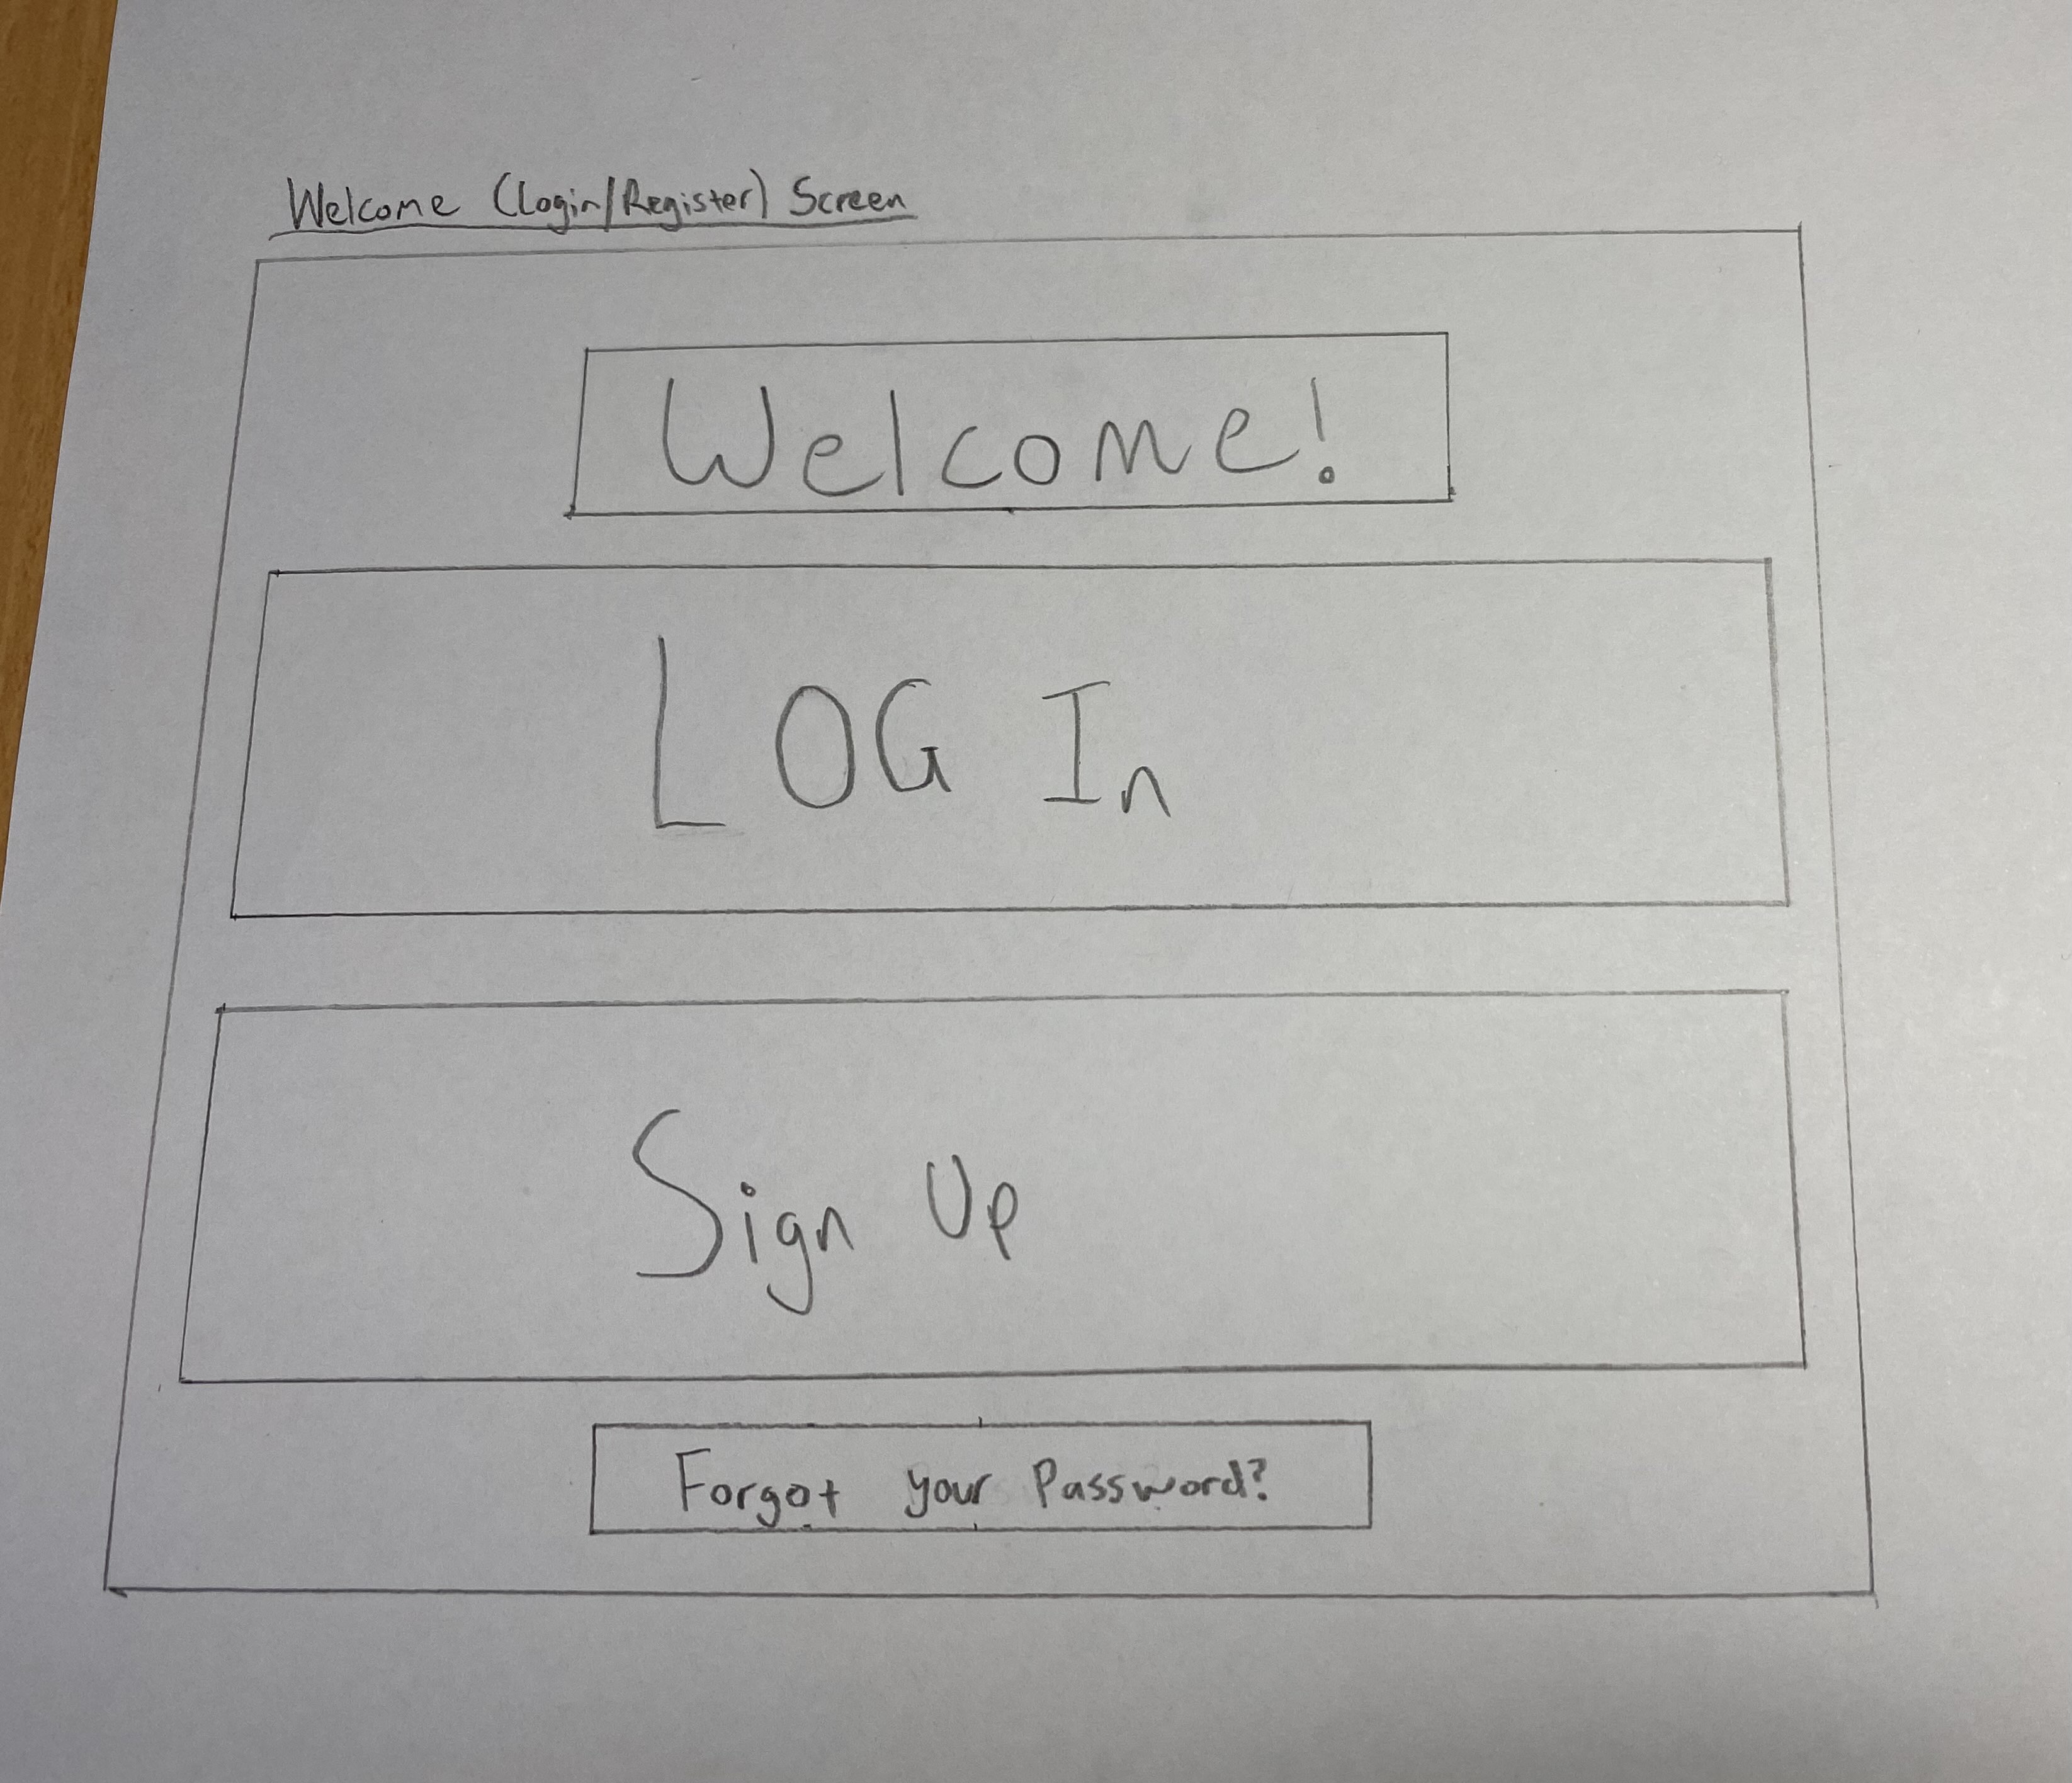 Welcome (Login/Register) Screen
Welcome!
LOG In
Sign Up
Forgot your Password?